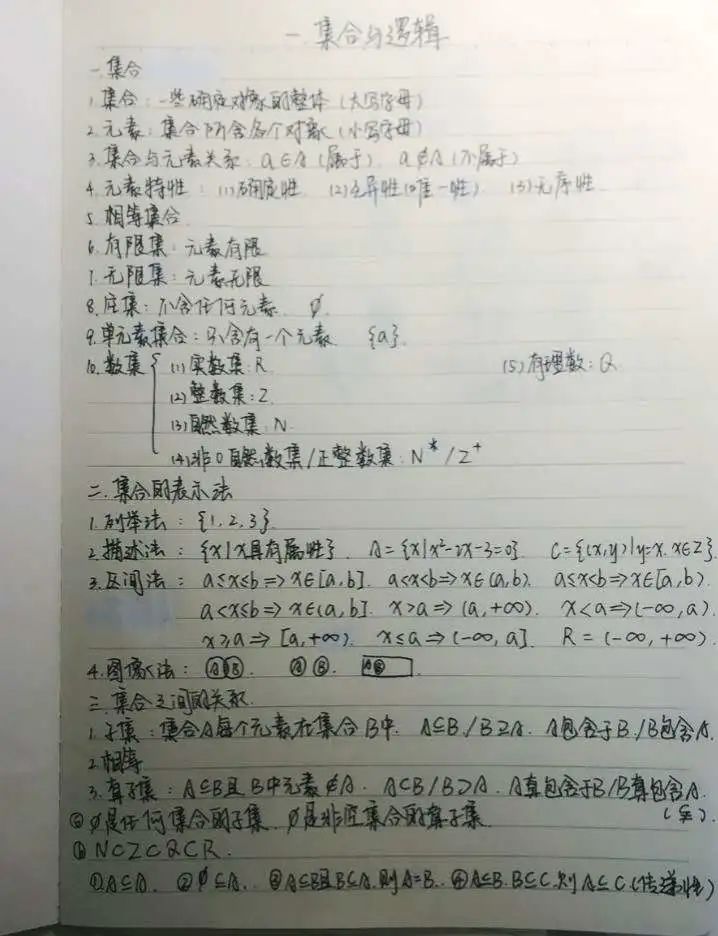 一 集合与逻辑
一.集合
1.集合:一些确定对象的整体(大写字母)
2.元素:集合中所含各个对象(小写字母)
3.集合与元素关系:a∈A(属于). a∉A(不属于)
4.元素特性:(1)确定性 (2)互异性(唯一性) (3)无序性
5.相等集合
6.有限集:元素有限
7.无限集:元素无限
8.空集:不含任何元素. ∅.
9.单元素集合:只含有一个元素 {a}.
10.数集 { (1)实数集:R (5)有理数:Q
(2)整数集:Z.
(3)自然数集:N.
(4)非0自然数集/正整数集:N*/Z+
二.集合的表示法
1.列举法:{1,2,3}.
2.描述法:{x|x具有属性}. A={x|x²-2x-3=0}. C={(x,y)|y=x.x∈Z}.
3.区间法:a≤x≤b=>x∈[a,b]. a<x<b=>x∈(a,b). a≤x<b=>x∈[a,b).
a<x≤b=>x∈(a,b]. x>a=>(a,+∞). x<a=>(-∞,a).
x≥a=>[a,+∞). x≤a=>(-∞,a]. R=(-∞,+∞).
4.图像法: A B. A B. A B
三.集合之间的关系.
1.子集:集合A每个元素在集合B中. A⊆B/B⊇A. A包含于B/B包含A.
2.相等
3.真子集:A⊆B且B中元素∉A. A⊂B/B⊃A. A真包含于B/B真包含A.
(⫋).
ⓐ∅是任何集合的子集.∅是非空集合的真子集
ⓑN⊂Z⊂Q⊂R.
①A⊆A. ②∅⊆A. ③A⊆B且B⊆A.则A=B. ④A⊆B.B⊆C.则A⊆C(传递性)